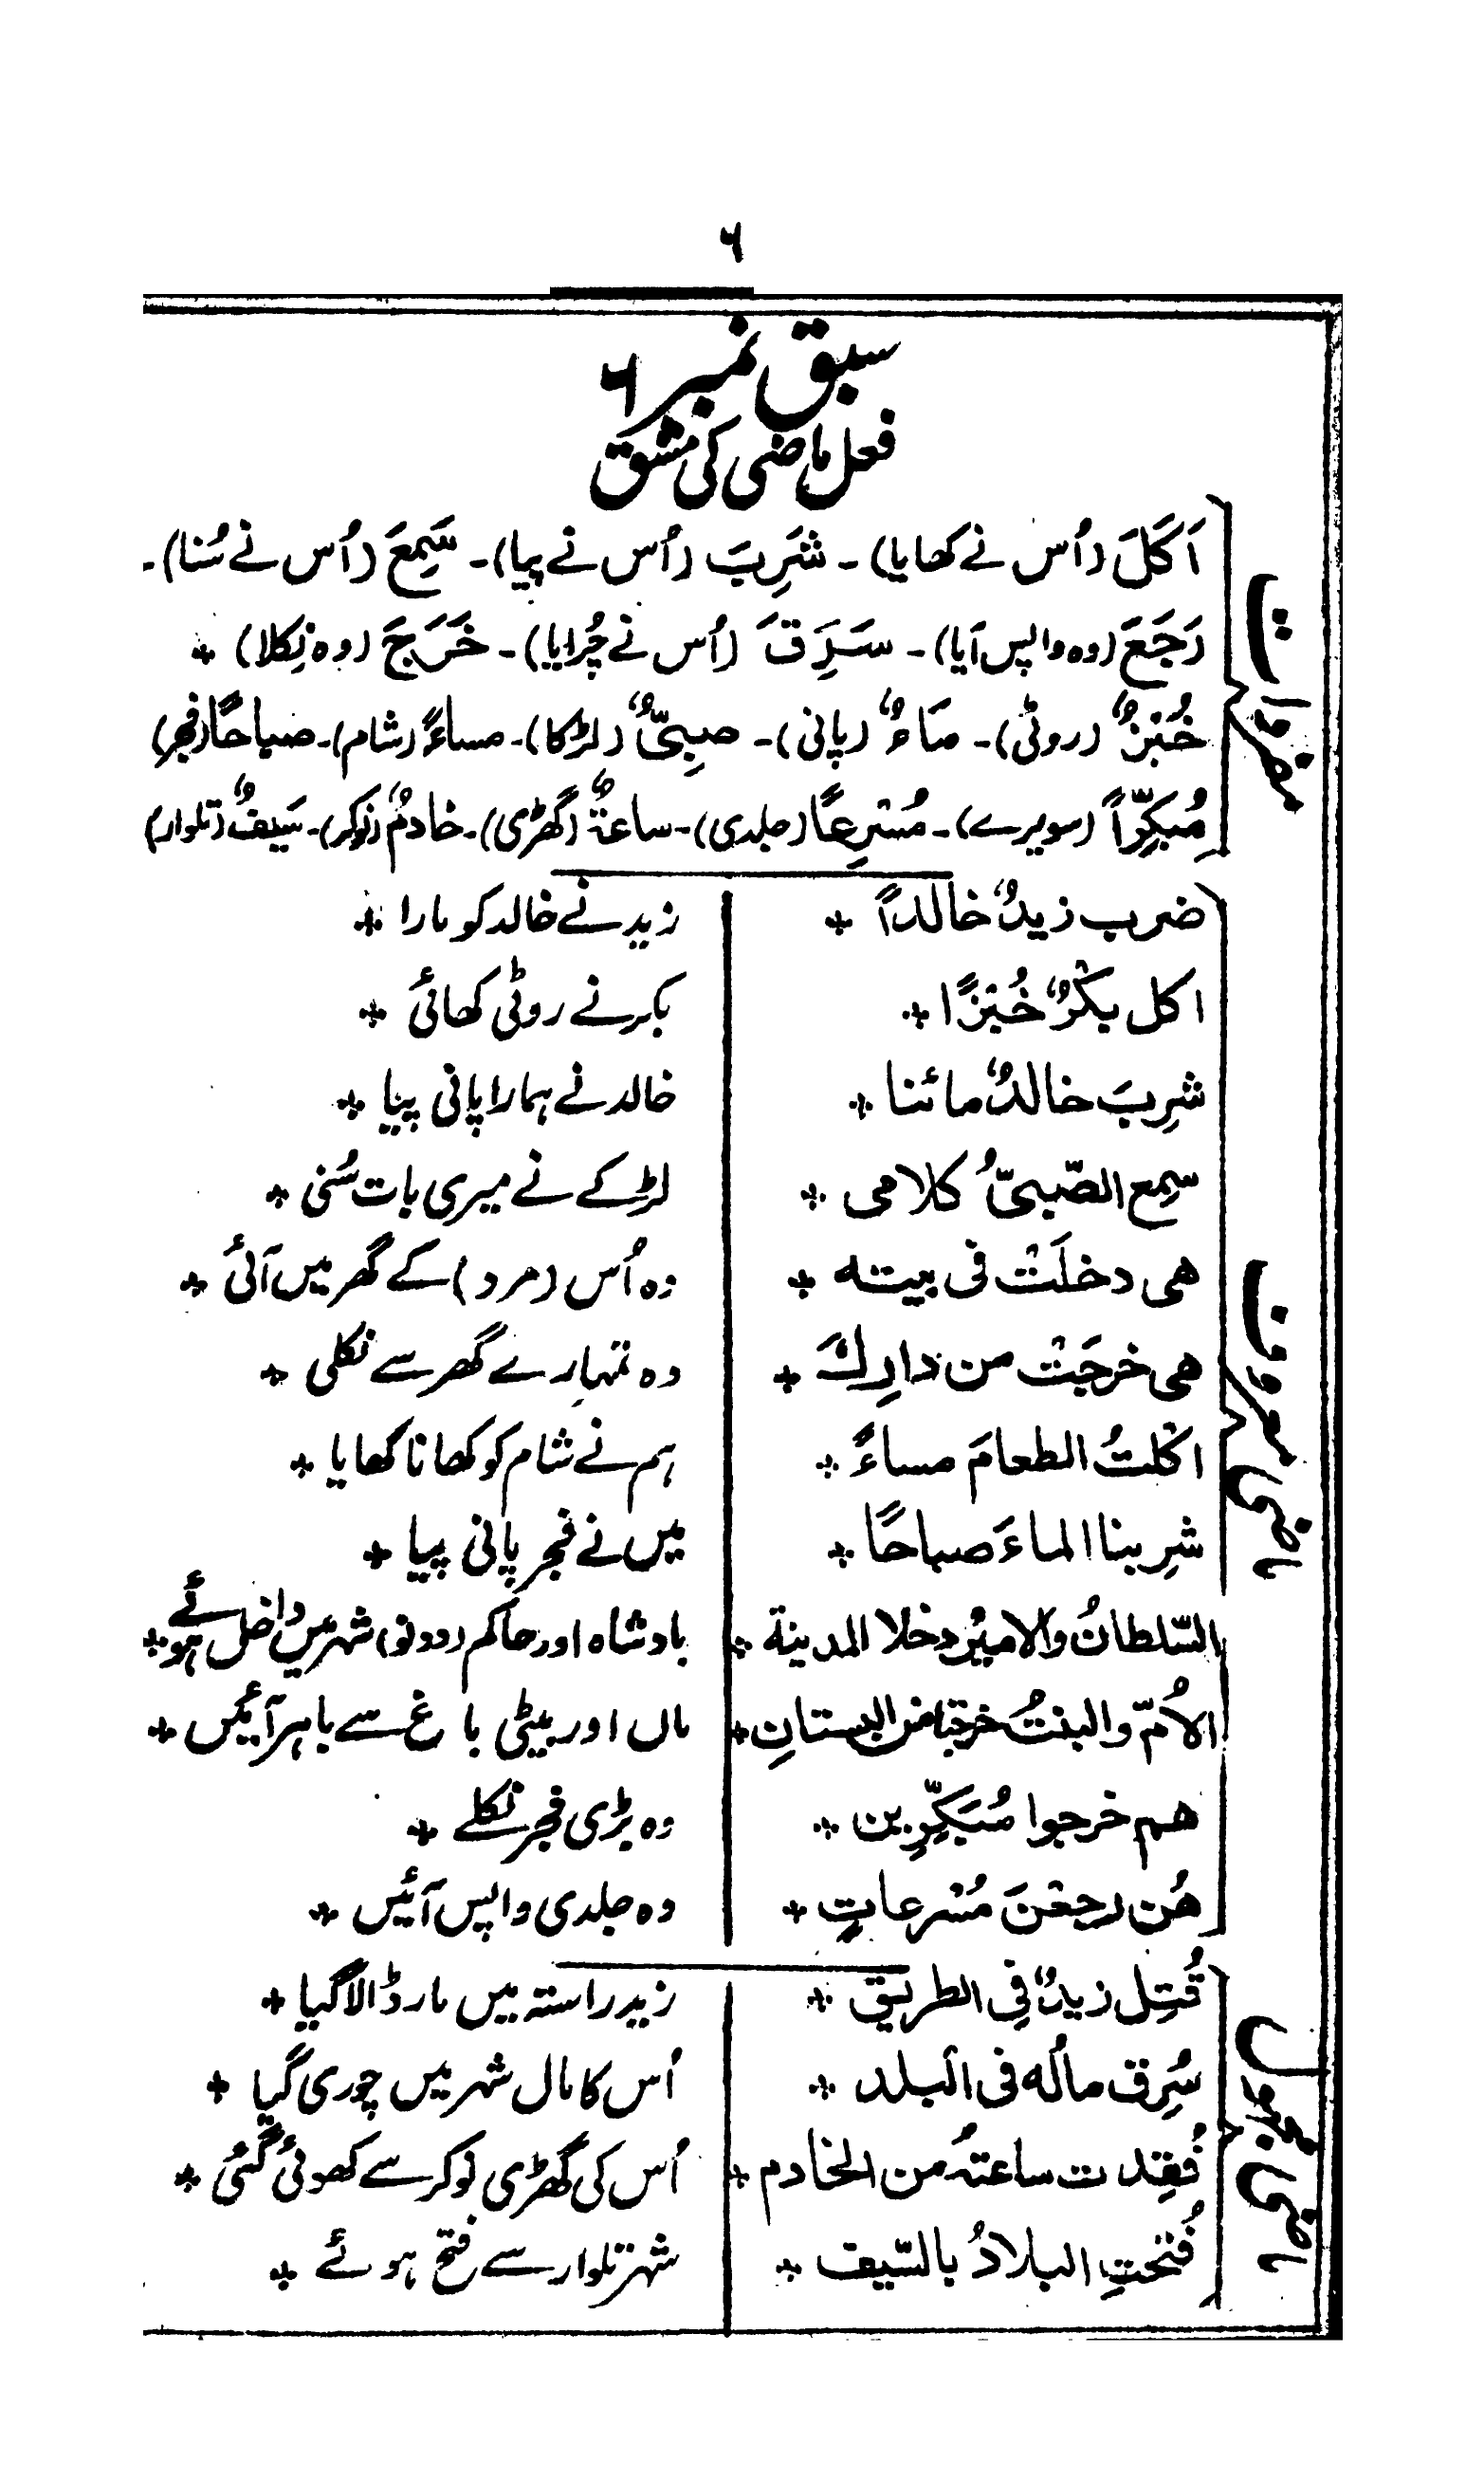 ۶
سبق نمبر ۶
فعل ماضی کی مشق
مفردات
اَکَلَ (اُس نے کھایا)۔ شَرِبَ (اُس نے پیا)۔ سَمِعَ (اُس نے سُنا)۔
رَجَعَ (وہ واپس آیا)۔ سَرَقَ (اُس نے چُرایا)۔ خَرَجَ (وہ نِکلا) ٭
خُبْزٌ (روٹی)۔ مَاءٌ (پانی)۔ صبِیٌّ (لڑکا)۔ مساءً (شام)۔ صباحًا (فجر)
مُبکِّراً (سویرے)۔ مُسْرِعًا (جلدی)۔ ساعۃٌ (گھڑی)۔ خادمٌ (نوکر)۔ سَیفٌ (تلوار)
ماضی معروف
ضرب زیدٌ خالداً ٭ زید نے خالد کو مارا ٭
اکل بکرٌ خُبْزًا ٭ بکر نے روٹی کھائی ٭
شرِبَ خالدٌ مائنا ٭ خالد نے ہمارا پانی پیا ٭
سمِع الصّبیُّ کلامی ٭ لڑکے نے میری بات سُنی ٭
ھی دخلَتْ فی بیتہ ٭ وہ اُس (مرد) کے گھر میں آئی ٭
ھی خرجَتْ من دارِكَ ٭ وہ تمہارے گھر سے نکلی ٭
اکلتُ الطعامَ مساءً ٭ ہم نے شام کو کھانا کھایا ٭
شرِبنا الماءَ صباحًا ٭ میں نے فجر پانی پیا ٭
السّلطانُ والامیرُ دخلا المدینۃ ٭ بادشاہ اور حاکم (دونو) شہر میں داخل ہوئے ٭
الاُمّ والبنتُ خرجتا من البستانِ ٭ ماں اور بیٹی باغ سے باہر آئیں ٭
ھم خرجوا مُبَکِّرین ٭ وہ بڑی فجر نکلے ٭
ھُن رجعْنَ مُسْرعاتٍ ٭ وہ جلدی واپس آئیں ٭
ماضی مجہول
قُتِل زیدٌ فِی الطریق ٭ زید راستہ میں مار ڈالا گیا ٭
سُرِق مالُہ فی البلد ٭ اُس کا مال شہر میں چوری گیا ٭
فُقِدت ساعتہُ من الخادم ٭ اُس کی گھڑی نوکر سے کھوئی گئی ٭
فُتحتِ البلادُ بالسّیف ٭ شہر تلوار سے فتح ہوئے ٭